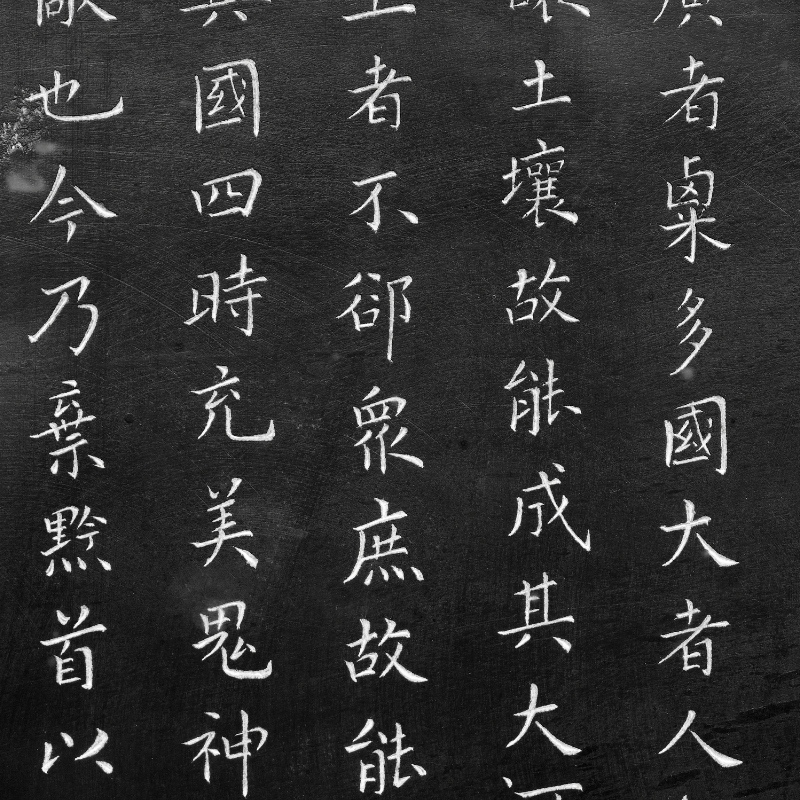 廣者粟多國大者人
讓土壤故能成其大河
王者不卻衆庶故能
異國四時充美鬼神
敵也今乃棄黔首以